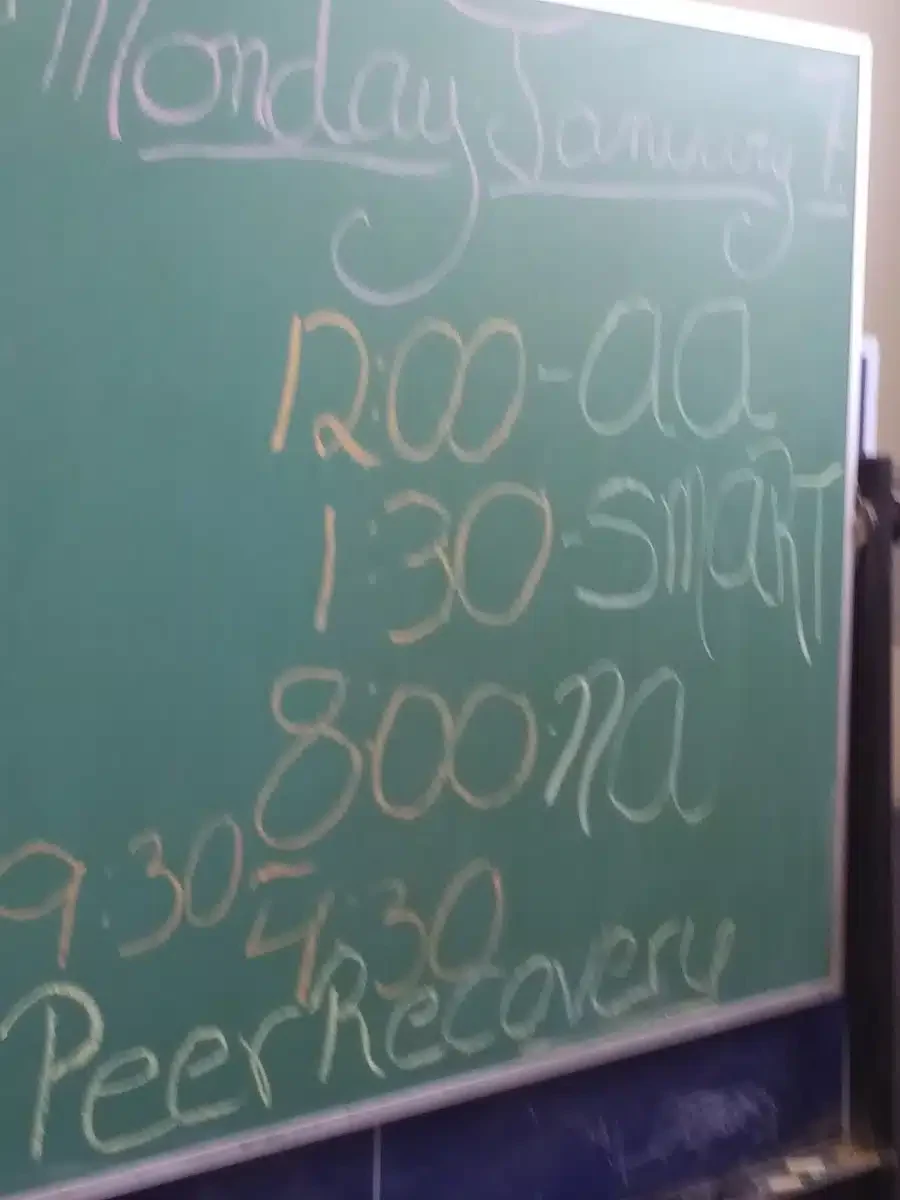 Monday January
12:00-aa
1:30-SMART
8:00 na
9:30-4:30
Peer Recovery